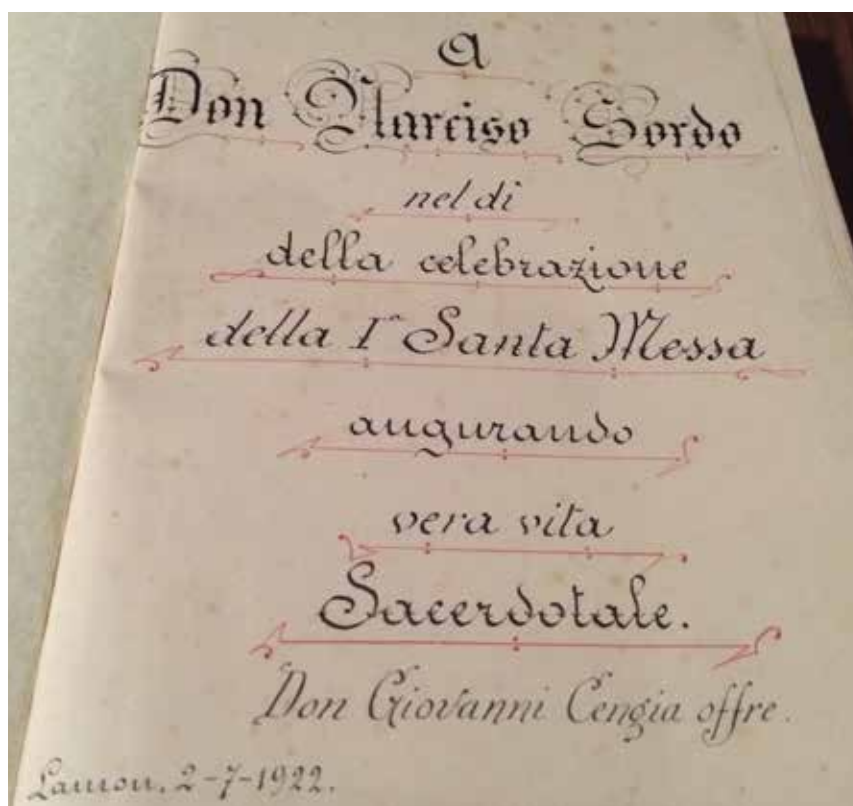 A
Don Narciso Sordo
nel di
della celebrazione
della Iª Santa Messa
augurando
vera vita
Sacerdotale.
Don Giovanni Cengia offre.
Lamon, 2-7-1922.